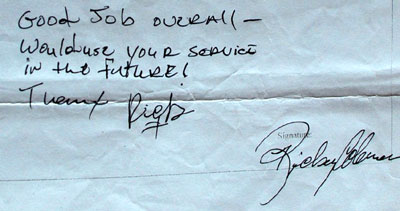 Good Job overall —
Would use your service
in the future!
Thanx
Signature